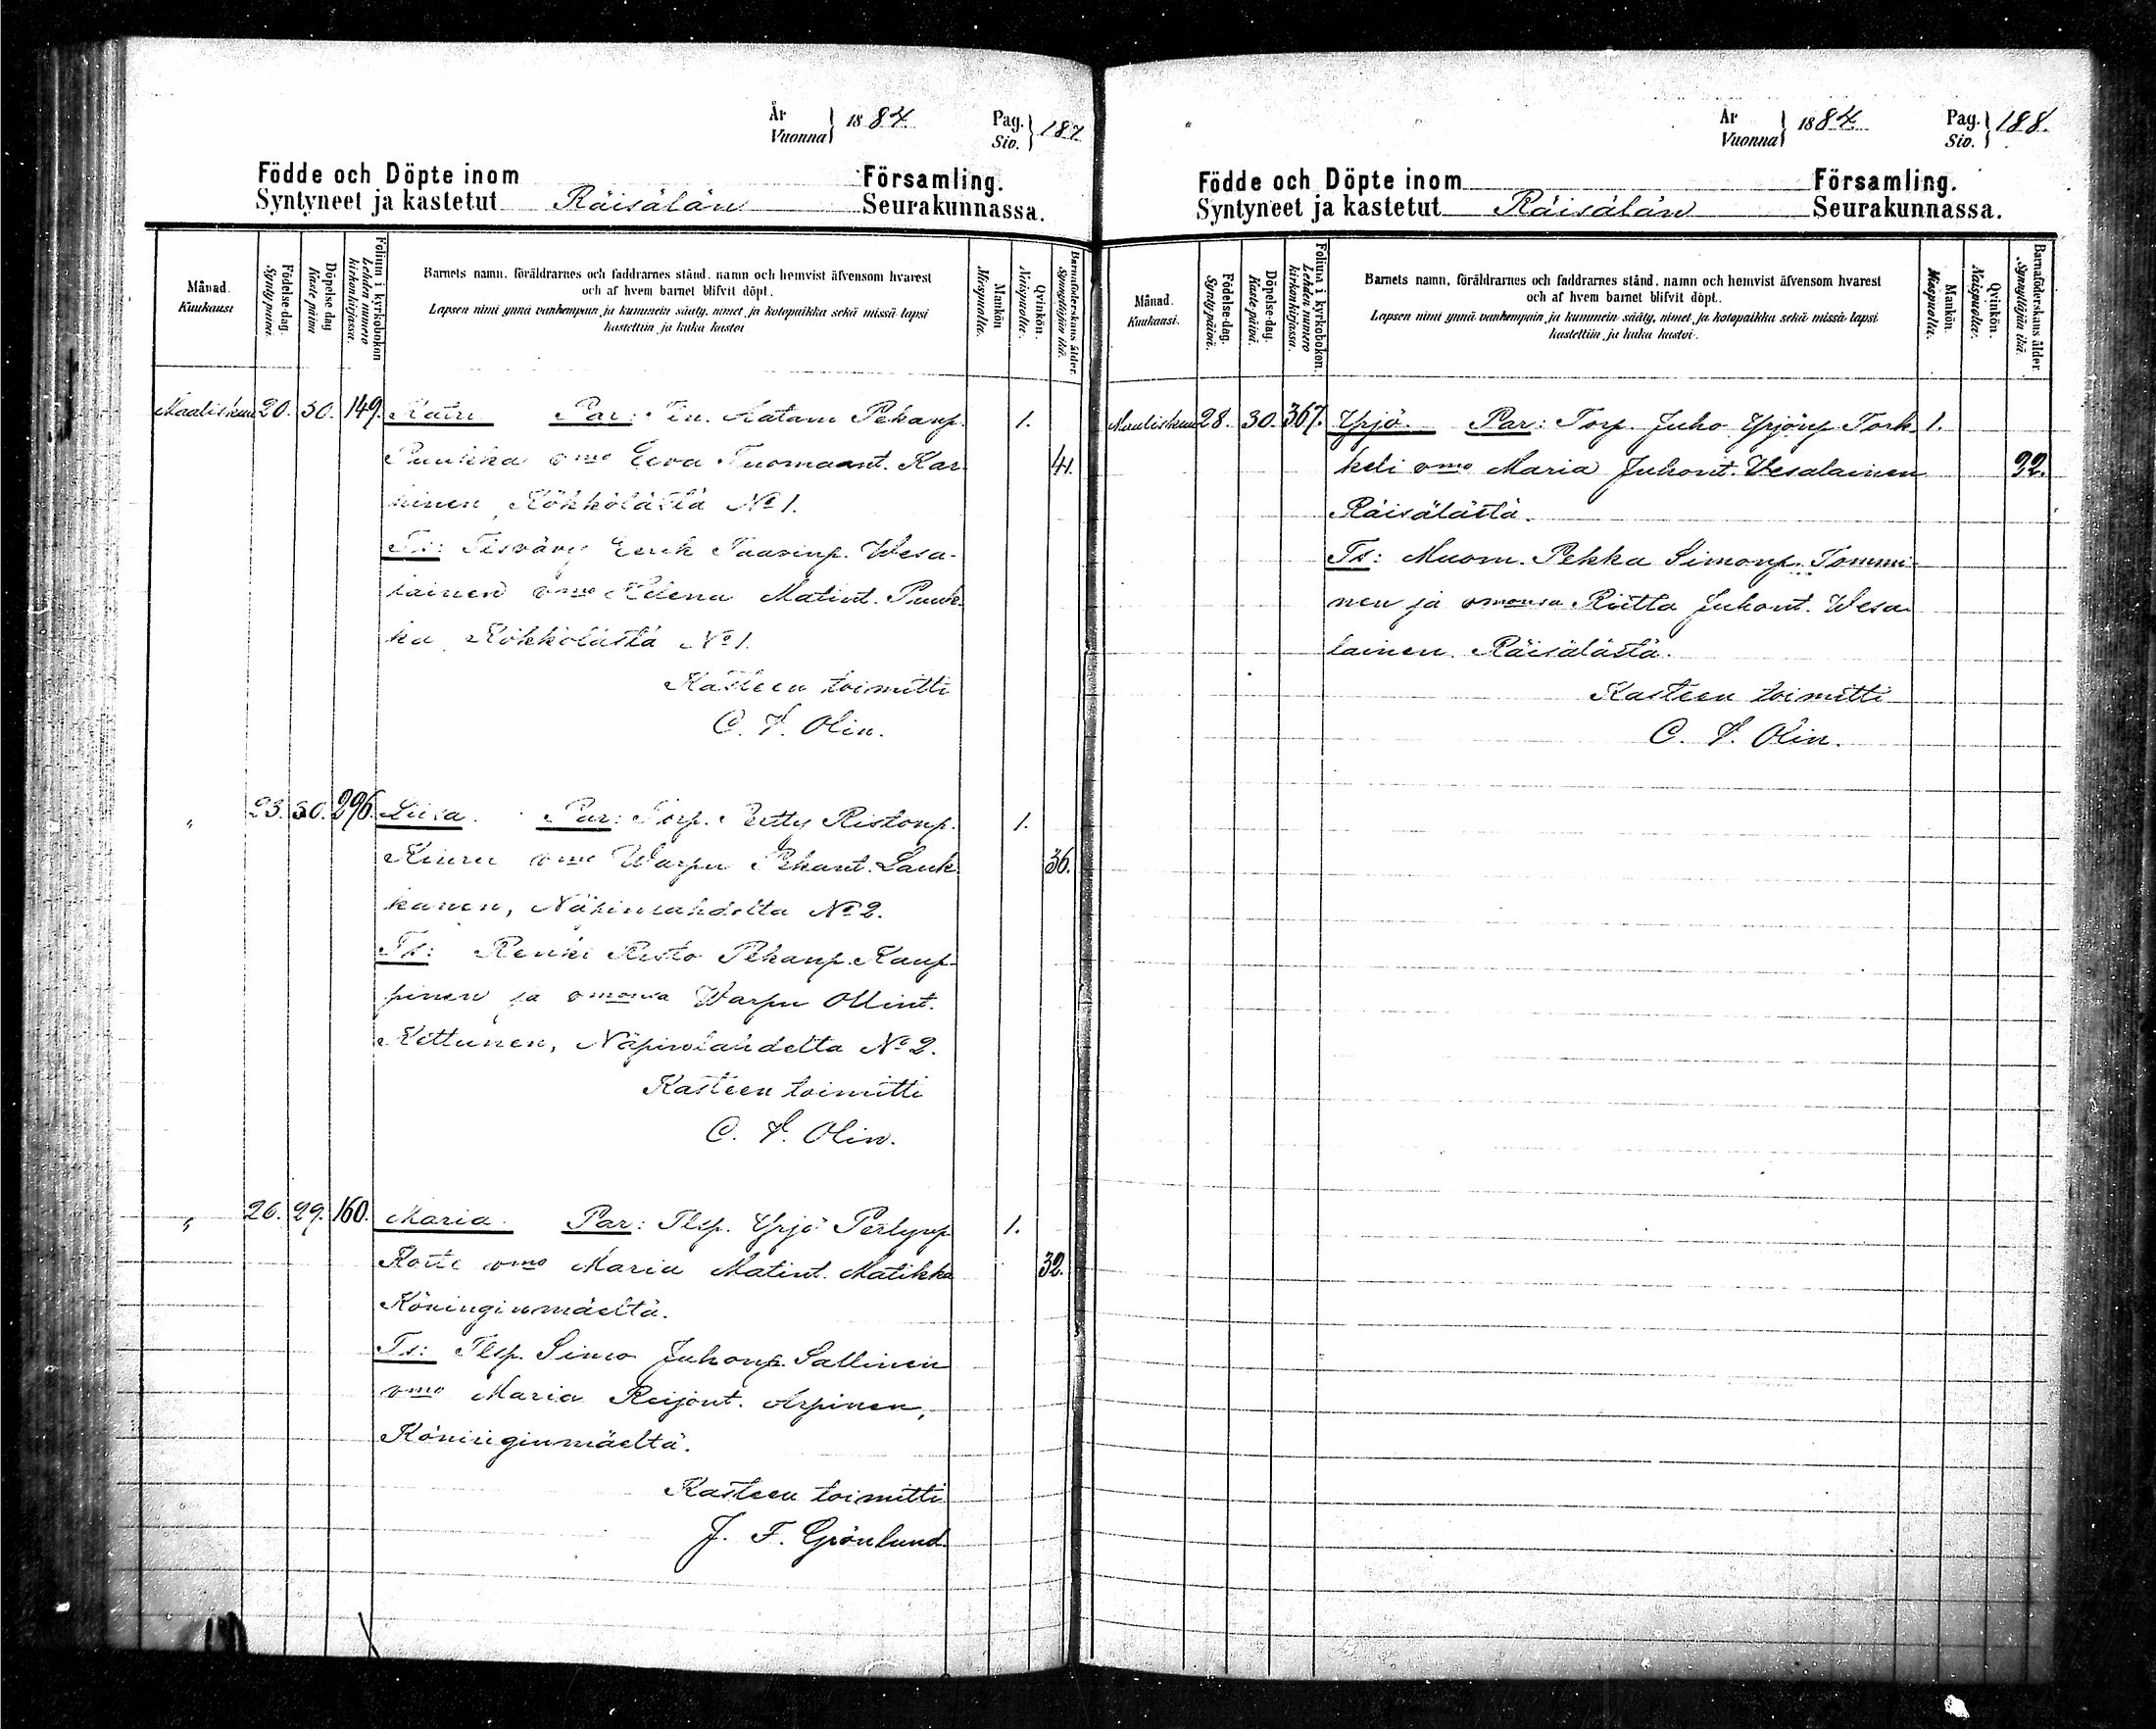 År
Vuonna } 1884.
Pag.
Siv. } 187
Födde och Döpte inom Församling.
Syntyneet ja kastetut Räisälän Seurakunnassa.
Månad.
Kuukausi
Födelse-dag.
Syntypäivä.
Döpelse dag
Kaste päivä
Folium i kyrkoboken
Lehden numero
kirkonkirjassa.
Barnets namn, föräldrarnes och faddrarnes stånd, namn och hemvist äfvensom hvarest
och af hvem barnet blifvit döpt.
Lapsen nimi ynnä vanhempain ja kummein sääty, nimet ja kotopaikka sekä missä lapsi
kastettiin ja kuka kastoi
Mankön
Miespuolta.
Qvinkön.
Naispuolta.
Barnaföderskans ålder.
Synnyttäjän ikä.
Maaliskuu 20. 30. 149. Katri Par: Aatam Pekanp. 1.
Puukka vmo Eeva Tuomaant. Kar- 41.
hinen, Kökkölästä No 1.
Ts: Eerik Paavinp. Wesa-
lainen vmo Helena Matint. Puuk-
ka, Kökkölästä No 1.
Kasteen toimitti
C. F. Olin.
" 23. 30. 296. Liisa. Par: Torp. Pertty Ristonp. 1.
Kiuru vmo Warpu Pekant. Lauk- 36.
kanen, Näpinlahdelta No 2.
Ts: Renki Risto Pekanp. Kaup-
pinen ja vmonsa Warpu Ollint.
Kettunen, Näpinlahdelta No 2.
Kasteen toimitti
C. F. Olin.
" 26. 29. 160. Maria. Par: Tlsp. Yrjö Pertynp 1.
Koite vmo Maria Matint. Matikka 32.
Köninginmäeltä.
Ts: Tlsp. Simo Juhonp. Sallinen
vmo Maria Reijont. Arpinen,
Köninginmäeltä.
Kasteen toimitti
J. F. Grönlund.
År
Vuonna } 1884.
Pag.
Siv. } 188.
Födde och Döpte inom Församling.
Syntyneet ja kastetut Räisälän Seurakunnassa.
Månad.
Kuukausi.
Födelse-dag.
Syntypäivä.
Döpelse-dag.
Kastepäivä.
Folium i kyrkoboken.
Lehden numero
kirkonkirjassa.
Barnets namn, föräldrarnes och faddrarnes stånd, namn och hemvist äfvensom hvarest
och af hvem barnet blifvit döpt.
Lapsen nimi ynnä vanhempain ja kummein sääty, nimet ja kotopaikka sekä missä lapsi
kastettiin ja kuka kastoi.
Mankön
Miespuolta.
Qvinkön.
Naispuolta.
Barnaföderskans ålder.
Synnyttäjän ikä.
Maaliskuu 28. 30. 367. Yrjö. Par: Torp. Juho Yrjönp. Tork- 1.
keli vmo Maria Juhont. Wesalainen 22.
Räisälästä.
Ts: Muom. Pekka Simonp. Tommi-
nen ja vmonsa Riitta Juhont. Wesa-
lainen. Räisälästä.
Kasteen toimitti
C. F. Olin.